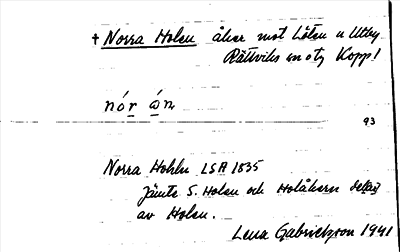 + Norra Holen åker mot Löten u Utby
Rättviks sn o tg Kopp!
nór ón
93
Norra Hohln LSA 1835
Jämte S. Holen och Holåkern delar
av Holen.
Lena Gabrielsson 1941